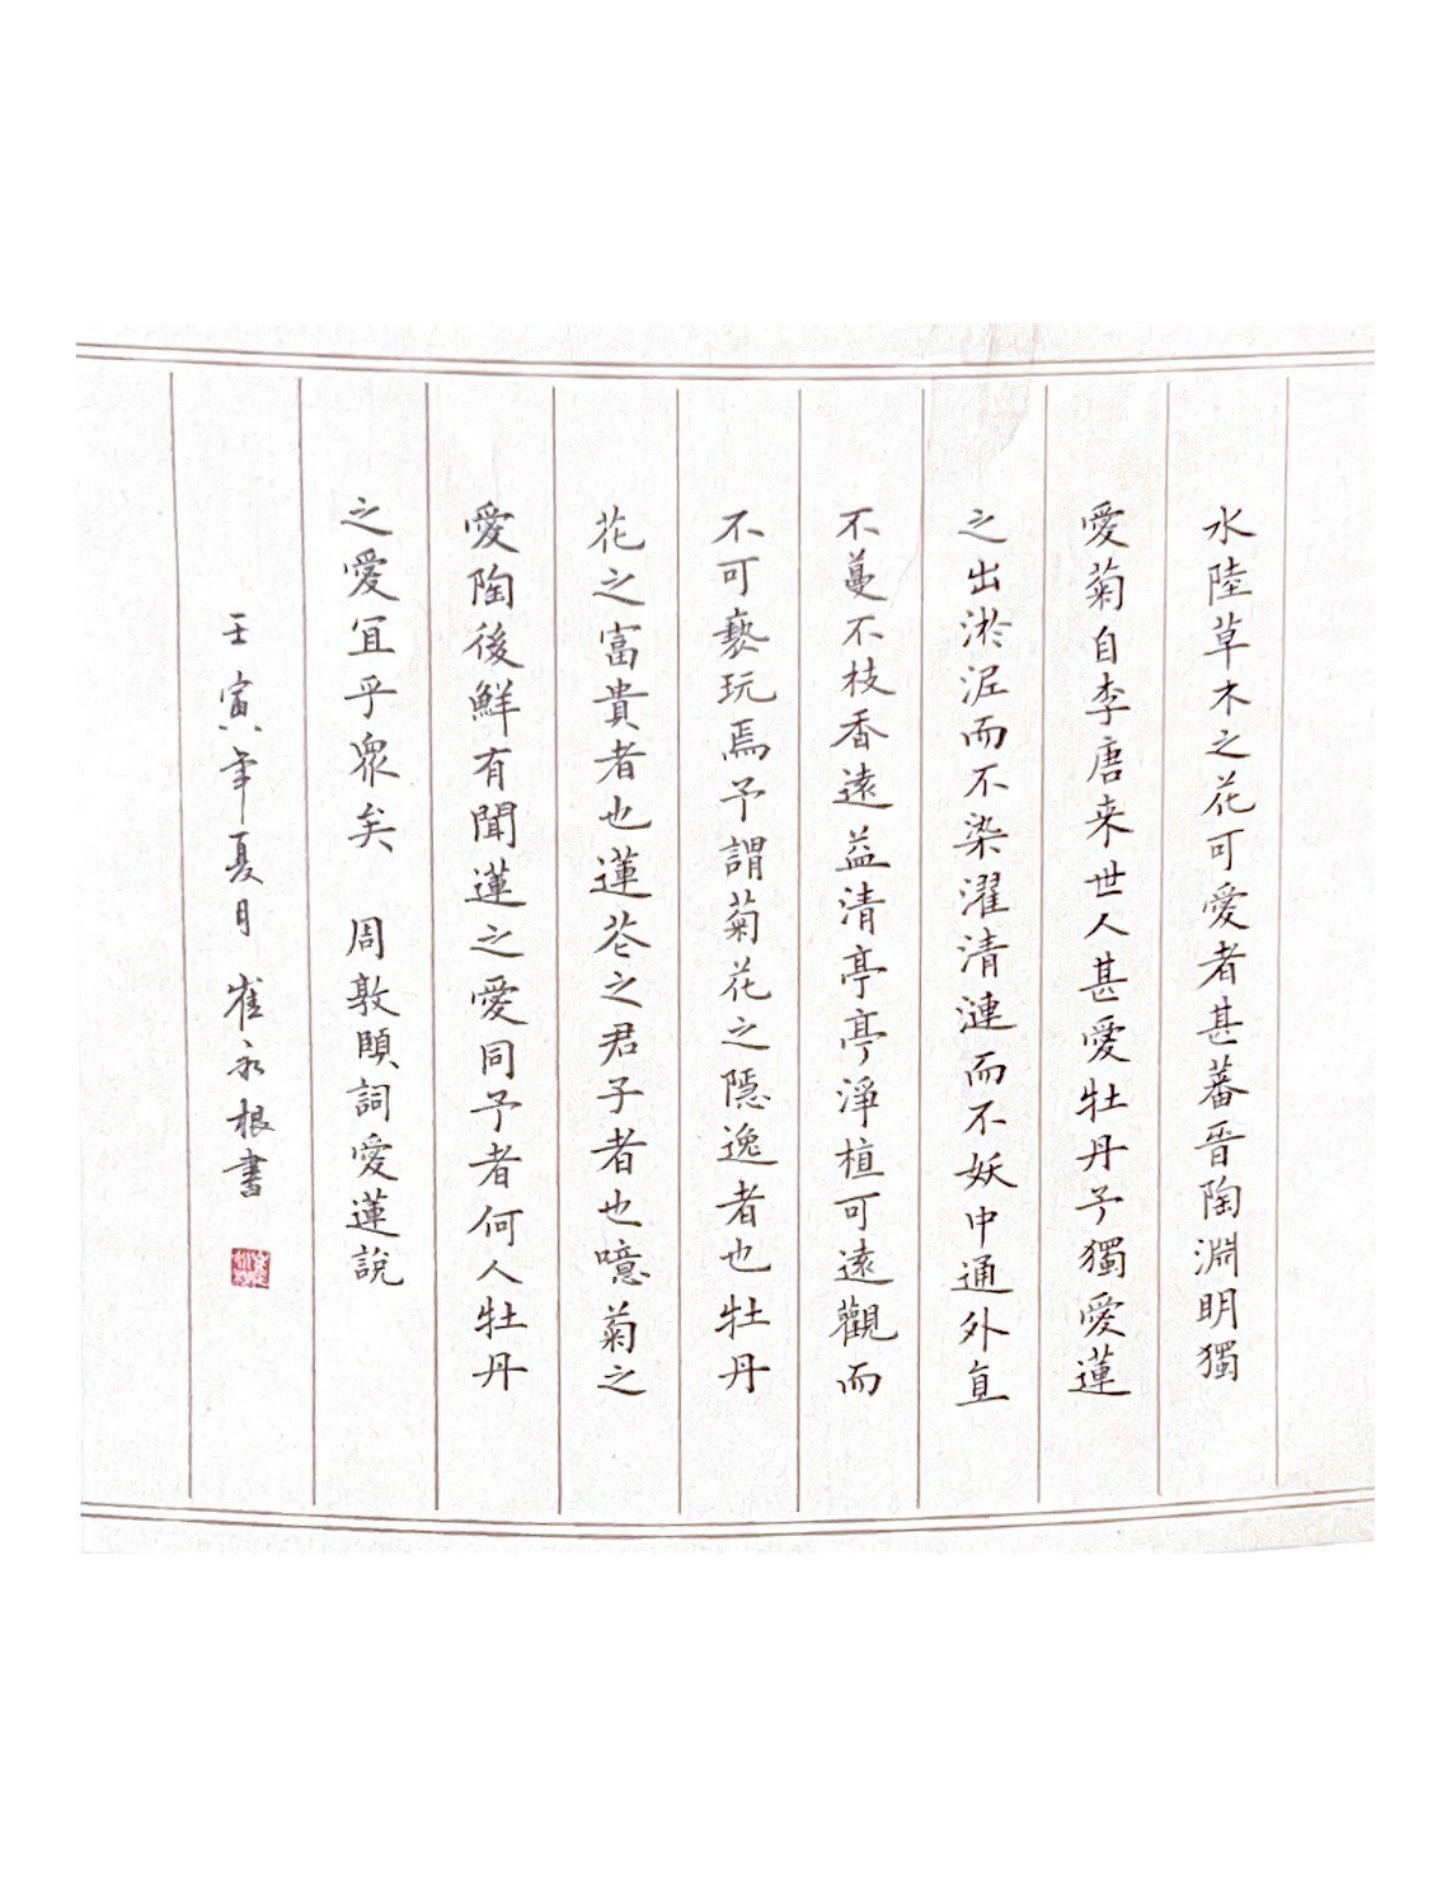 水陸草木之花可愛者甚蕃晉陶淵明獨
愛菊自李唐来世人甚愛牡丹予獨愛蓮
之出淤泥而不染濯清漣而不妖中通外直
不蔓不枝香遠益清亭亭淨植可遠觀而
不可褻玩焉予謂菊花之隱逸者也牡丹
花之富貴者也蓮花之君子者也噫菊之
愛陶後鮮有聞蓮之愛同予者何人牡丹
之愛宜乎眾矣 周敦頤詞愛蓮說
壬寅年夏月 崔永根書